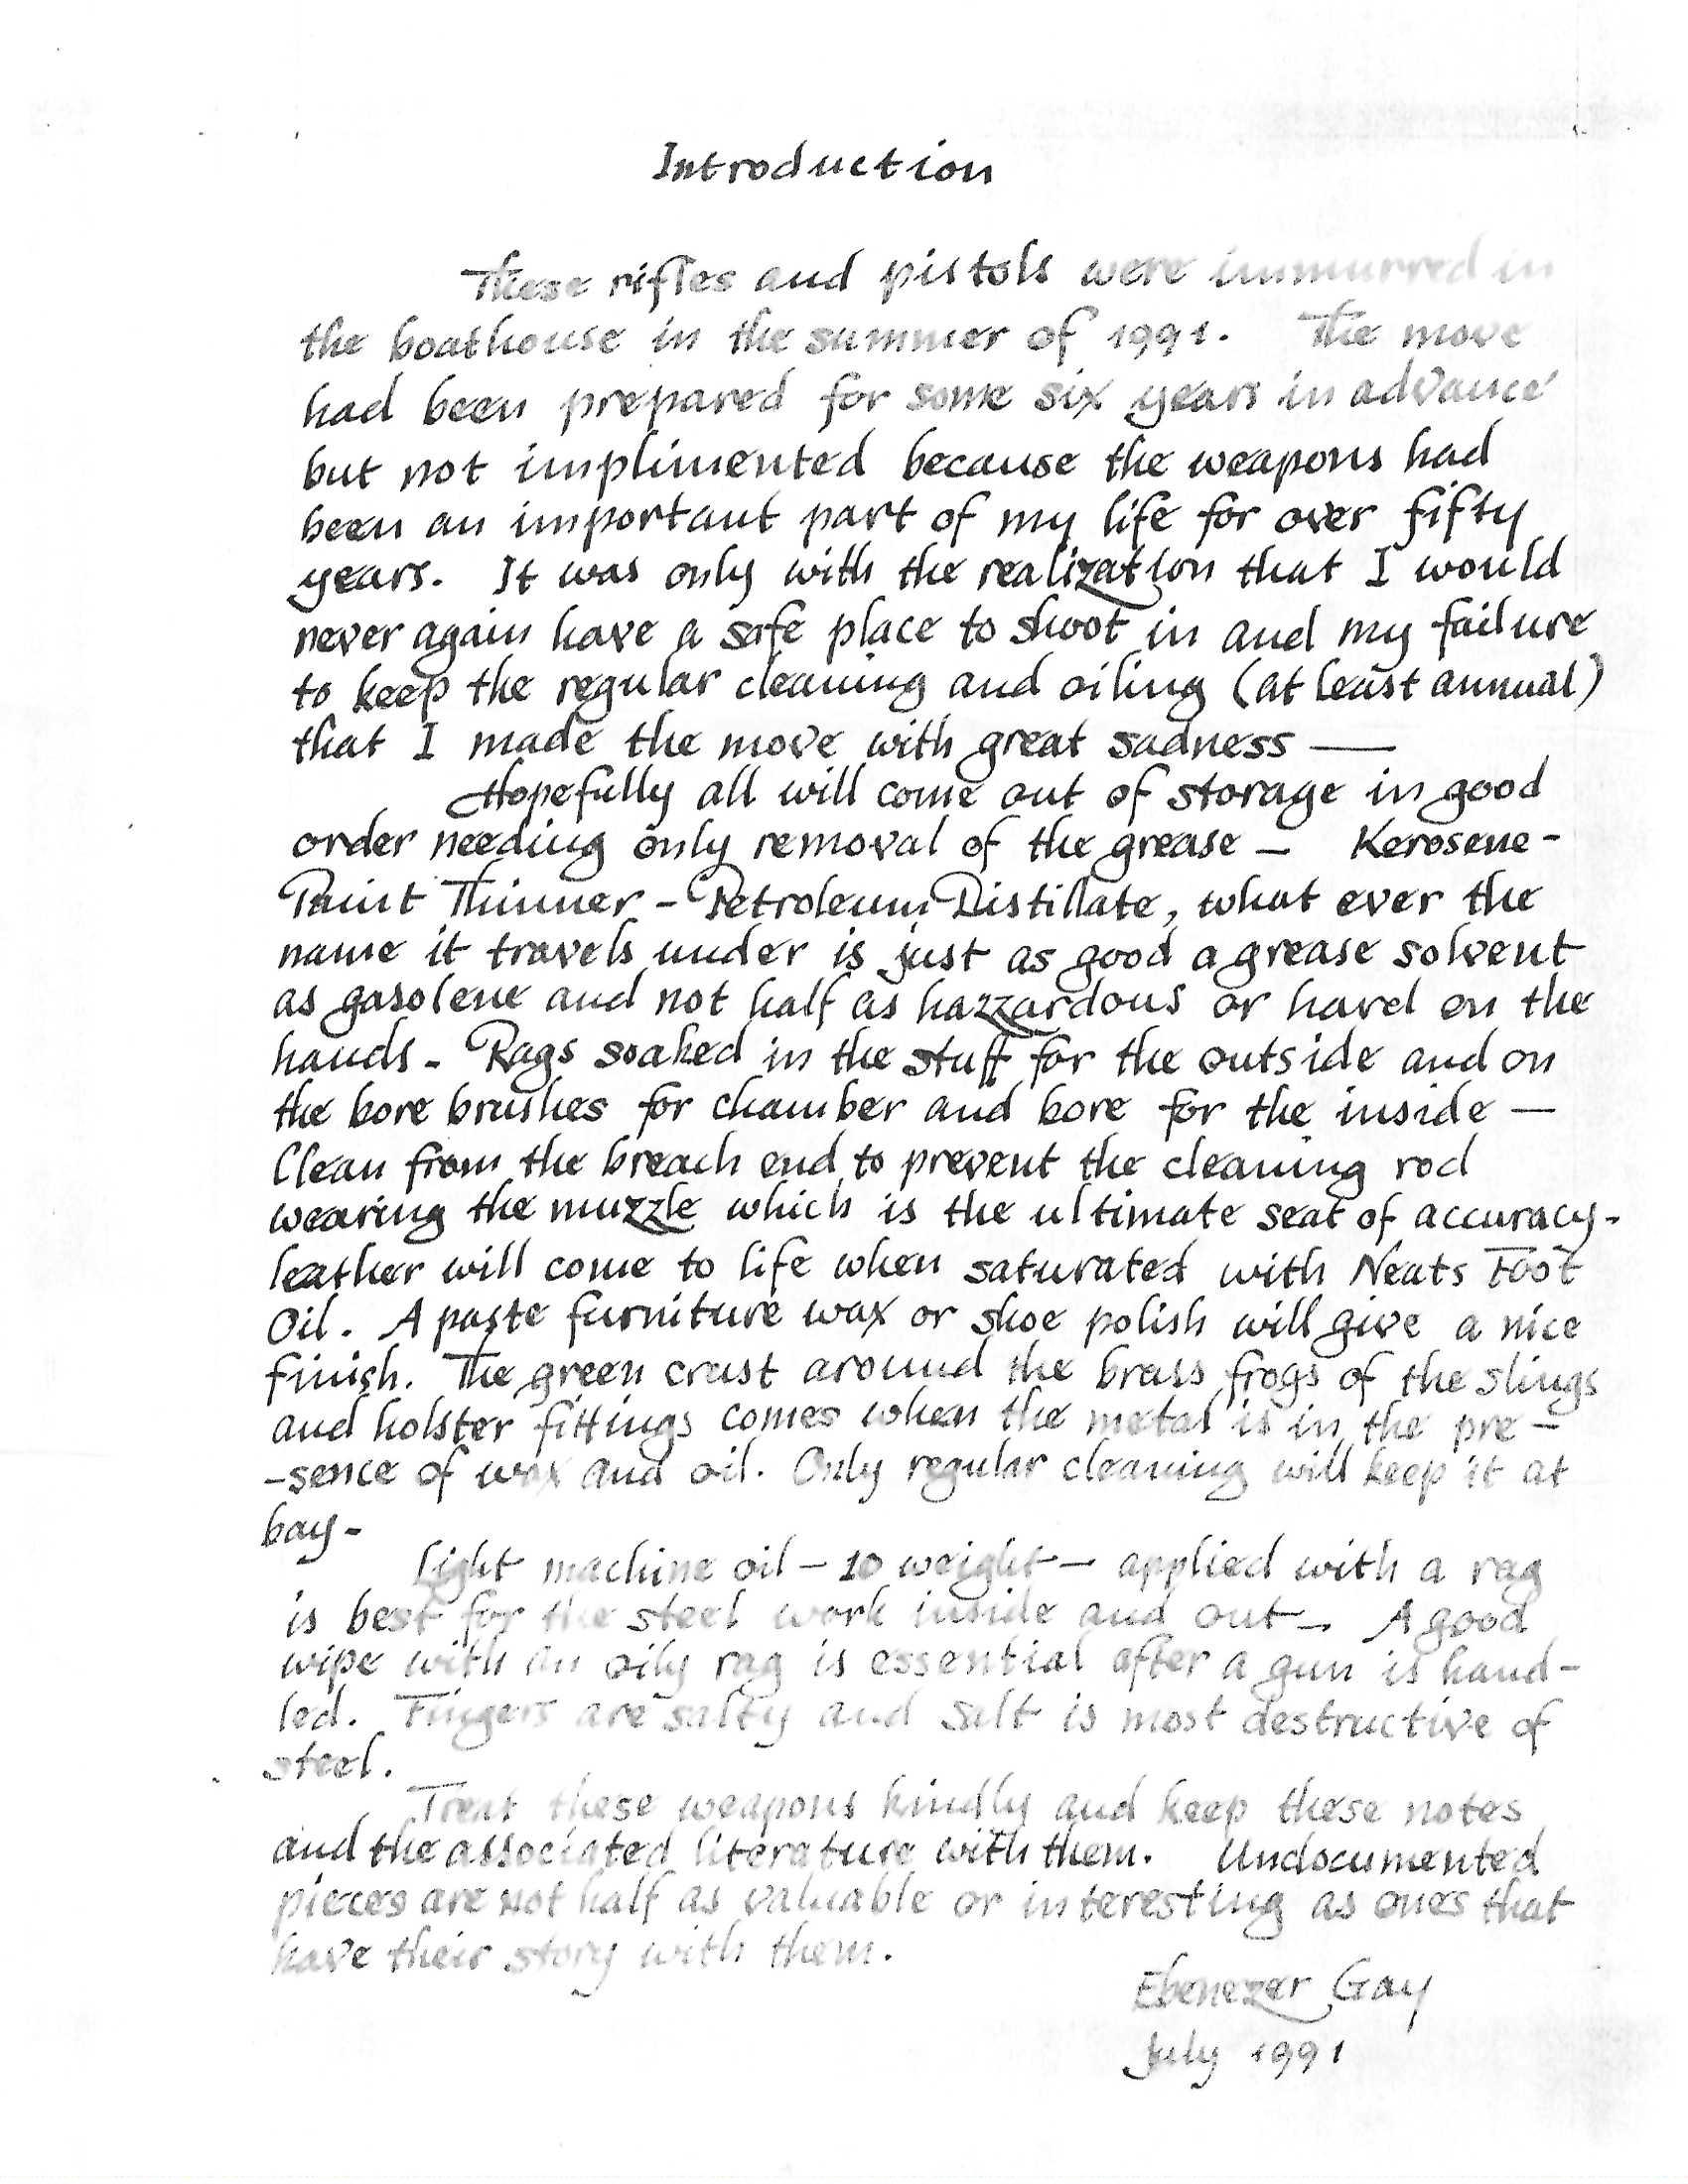 Introduction
These rifles and pistols were immurred in
the boathouse in the summer of 1991. The move
had been prepared for some six years in advance
but not implimented because the weapons had
been an important part of my life for over fifty
years. It was only with the realization that I would
never again have a safe place to shoot in and my failure
to keep the regular cleaning and oiling (at least annual)
that I made the move with great sadness —
Hopefully all will come out of storage in good
order needing only removal of the grease — Kerosene -
Paint Thinner - Petroleum Distillate, what ever the
name it travels under is just as good a grease solvent
as gasolene and not half as hazzardous or hard on the
hands - Rags soaked in the stuff for the outside and on
the bore brushes for chamber and bore for the inside —
Clean from the breach end to prevent the cleaning rod
wearing the muzzle which is the ultimate seat of accuracy -
leather will come to life when saturated with Neats Foot
Oil. A paste furniture wax or shoe polish will give a nice
finish. The green crust around the brass frogs of the slings
and holster fittings comes when the metal is in the pre -
-sence of wax and oil. Only regular cleaning will keep it at
bay -
Light machine oil — 10 weight — applied with a rag
is best for the steel work inside and out — A good
wipe with an oily rag is essential after a gun is hand-
led. Fingers are salty and salt is most destructive of
steel.
Treat these weapons kindly and keep these notes
and the associated literature with them. Undocumented
pieces are not half as valuable or interesting as ones that
have their story with them.
Ebenezer Gay
July 1991